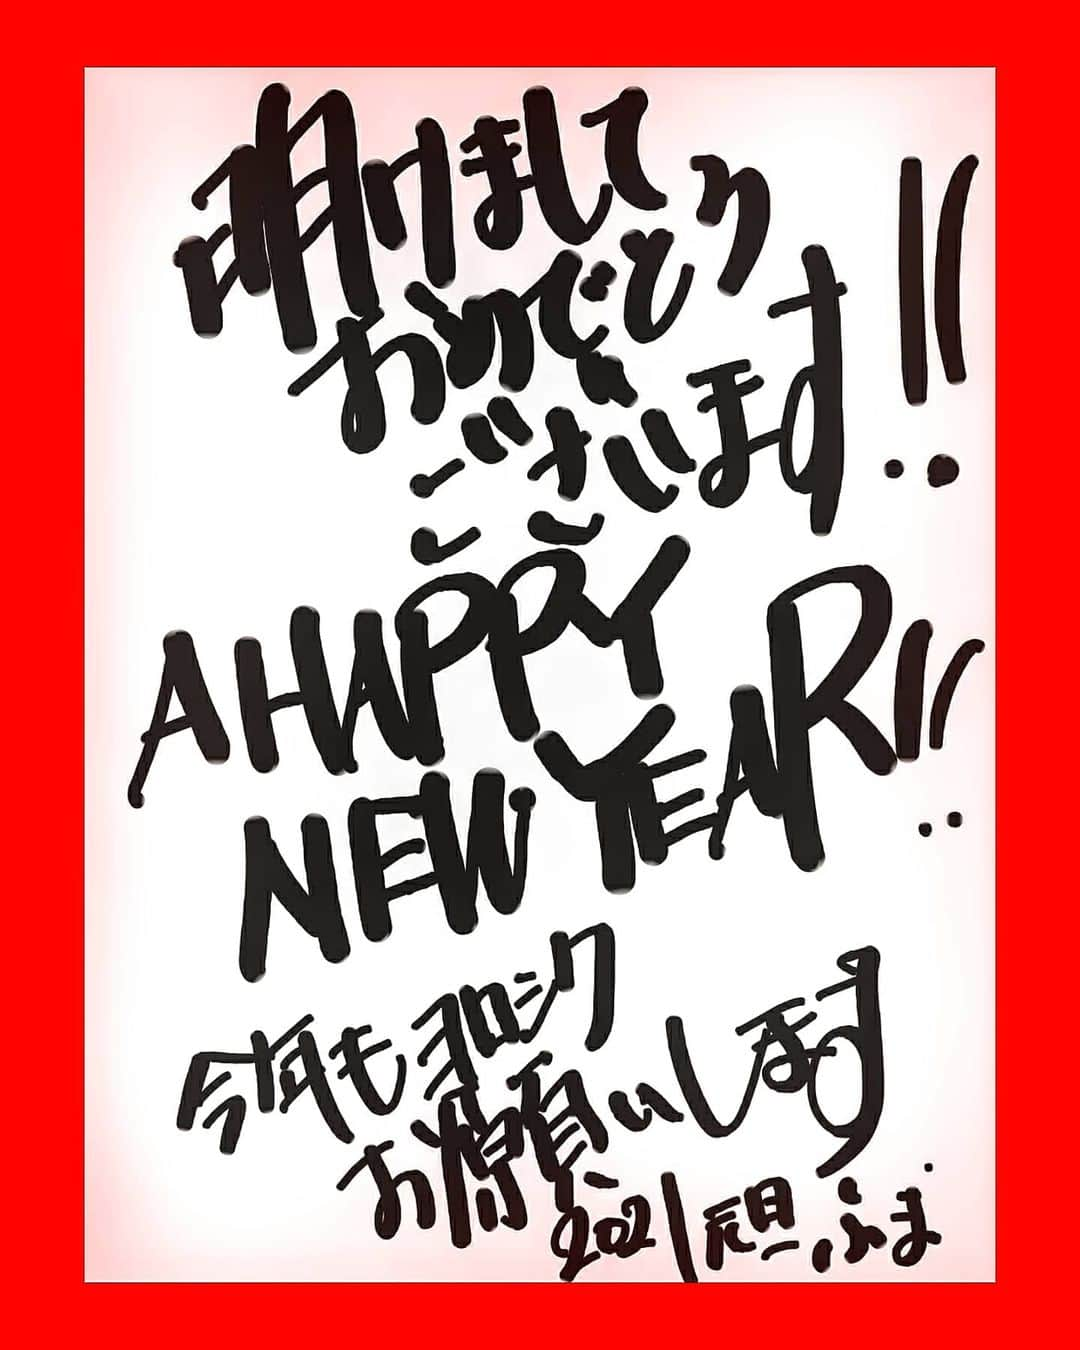 明けまして
おめでとう
ございます!!
A HAPPY
NEW YEAR!!
今年もヨロシク
お願いします
2021 元旦 ふま